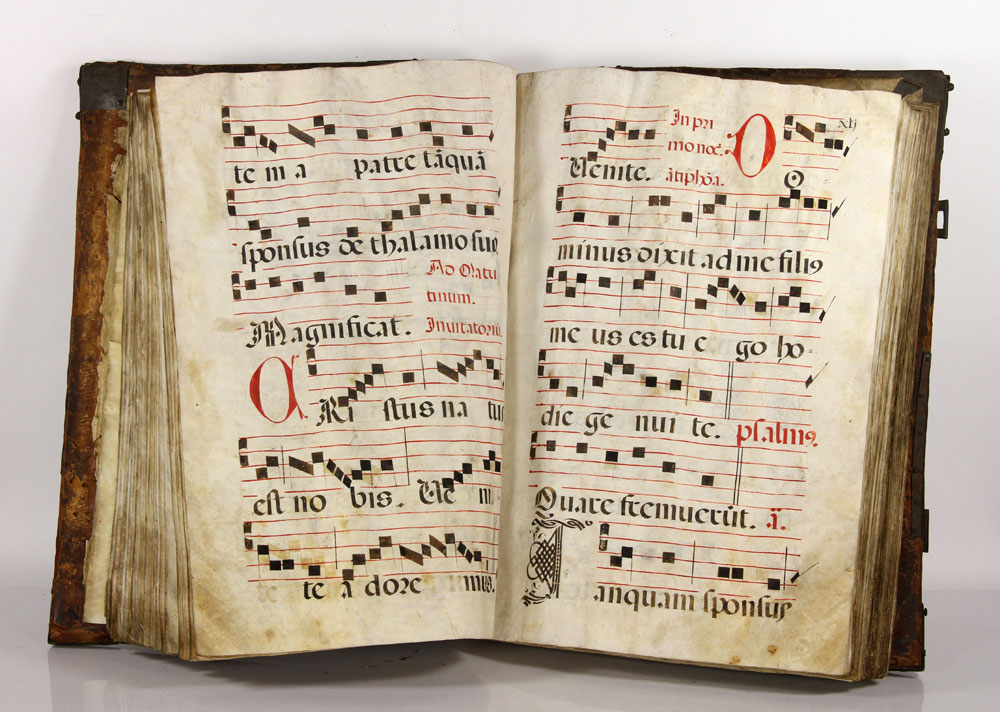 te m a patre tāquā
sponsus de thalamo suo
Ad Matu
tinum.
Magnificat. Inuitatoriū.
Christus na tus
est no bis. Ve ni
te a dore mus.
In pri
mo noc̄.
Venite. ātiphōa.
D O
minus dixit ad me fili9
me us es tu e go ho-
die ge nui te. psalm9.
Quare fremuerūt. ā.
Tanquam sponsus